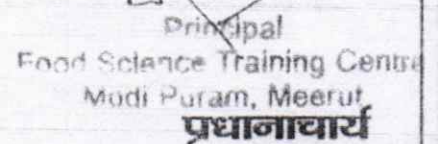 Principal
Food Science Training Centre
Modi Puram, Meerut
प्रधानाचार्य